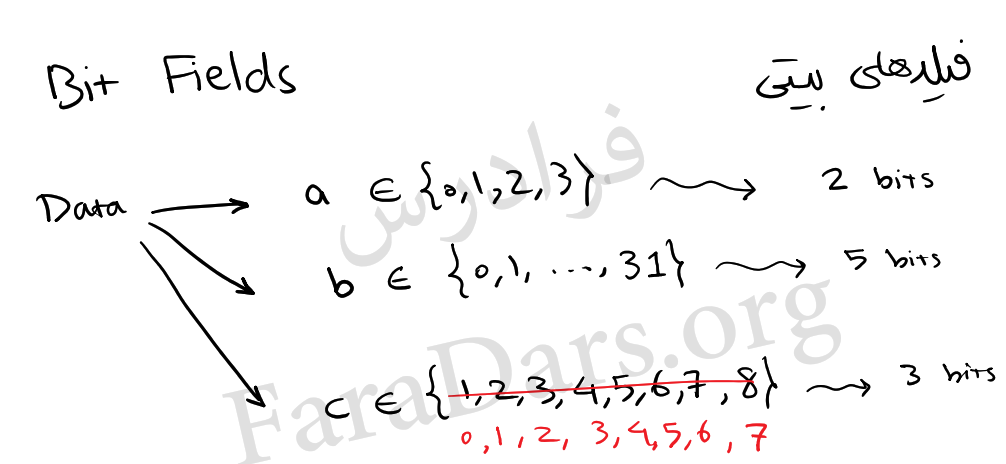 Bit Fields فیلدهای بیتی
Data → a ∈ {0,1,2,3} → 2 bits
b ∈ {0,1, ..., 31} → 5 bits
c ∈ {1,2,3,4,5,6,7,8} → 3 bits
0,1,2,3,4,5,6,7
فرادرس
FaraDars.org